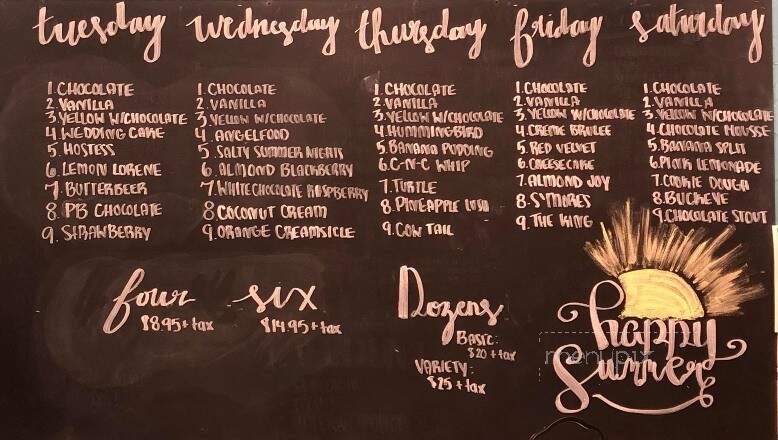 tuesday
1. CHOCOLATE
2. VANILLA
3. YELLOW W/CHOCOLATE
4. WEDDING CAKE
5. HOSTESS
6. LEMON LORENE
7. BUTTERBEER
8. PB CHOCOLATE
9. STRAWBERRY
wednesday
1. CHOCOLATE
2. VANILLA
3. YELLOW W/CHOCOLATE
4. ANGELFOOD
5. SALTY SUMMER NIGHTS
6. ALMOND BLACKBERRY
7. WHITE CHOCOLATE RASPBERRY
8. COCONUT CREAM
9. ORANGE CREAMSICLE
thursday
1. CHOCOLATE
2. VANILLA
3. YELLOW W/CHOCOLATE
4. HUMMINGBIRD
5. BANANA PUDDING
6. C-N-C WHIP
7. TURTLE
8. PINEAPPLE USD
9. COW TAIL
friday
1. CHOCOLATE
2. VANILLA
3. YELLOW W/CHOCOLATE
4. CREME BRULEE
5. RED VELVET
6. CHEESECAKE
7. ALMOND JOY
8. S'MORES
9. THE KING
saturday
1. CHOCOLATE
2. VANILLA
3. YELLOW W/CHOCOLATE
4. CHOCOLATE MOUSSE
5. BANANA SPLIT
6. PINK LEMONADE
7. COOKIE DOUGH
8. BUCKEYE
9. CHOCOLATE STOUT
four
$8.95 + tax
six
$14.95 + tax
Dozens
BASIC:
$20 + tax
VARIETY:
$25 + tax
happy
summer
menupix